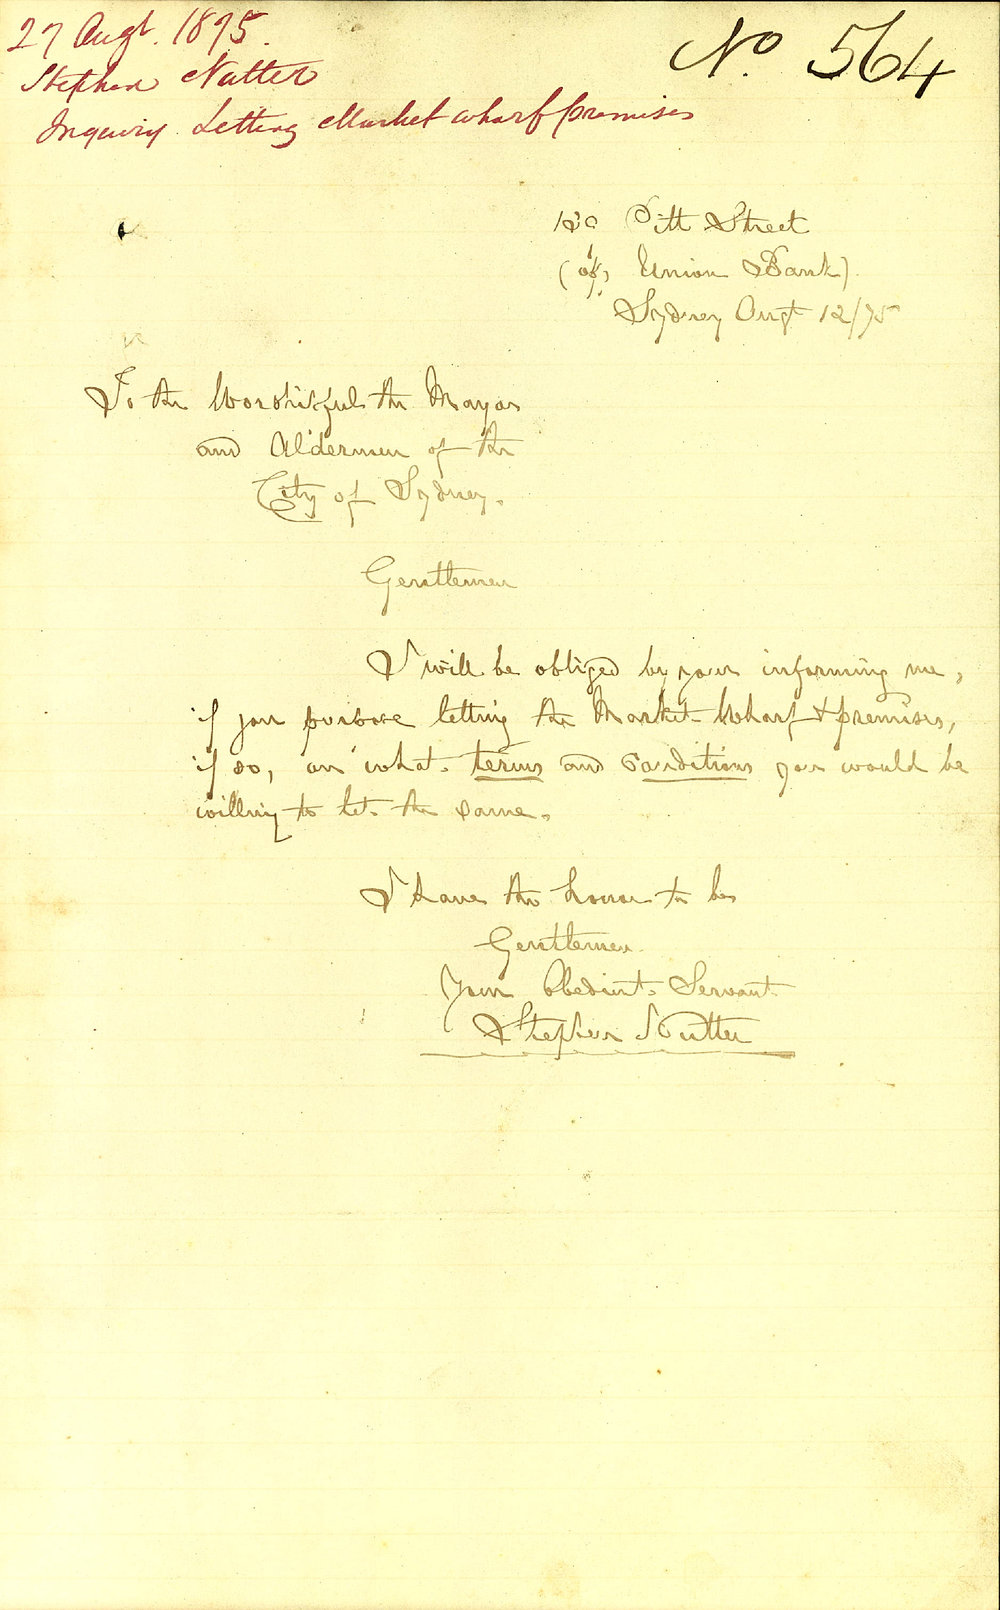 27 Augt. 1875.
Stephen Nutter
Inquiry Letting Market wharf premises
No. 564
Pitt Street
(op. Union Bank).
Sydney Augt 12/75
To the Worshipful the Mayor
and Aldermen of the
City of Sydney.
Gentlemen
I will be obliged by your informing me,
if you purpose letting the Market Wharf & premises,
if so, on what terms and conditions you would be
willing to let the same.
I have the honor to be
Gentlemen
Your Obedient Servant
Stephen Nutter